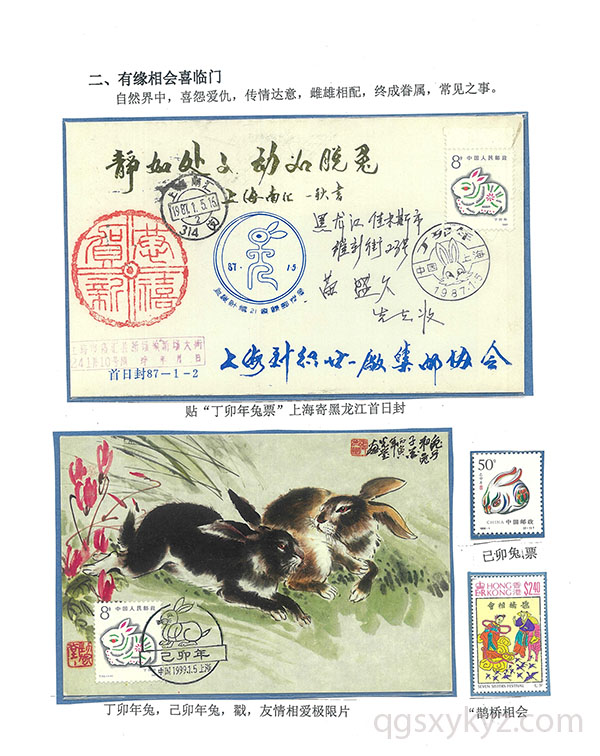 二、有缘相会喜临门
自然界中，喜怨爱仇，传情达意，雌雄相配，终成眷属，常见之事。
静如处子 动如脱兔
8分 中国人民邮政
上海南汇
1987.1.5.15
314
恭贺新禧
87· 1·5
黑龙江佳木斯市
中国 上海
1987.1.5
先生收
首日封87-1-2
上海针织廿一厂集邮协会
贴“丁卯年兔票”上海寄黑龙江首日封
8分 中国人民邮政
己卯年
中国1999.1.5上海
50分
CHINA 中国邮政
己卯兔票
HONG KONG
香港
$2.40
會相橋鵲
SEVEN SISTERS FESTIVAL
丁卯年兔，己卯年兔，戳，友情相爱极限片
“鹊桥相会
qgsxykyz.com